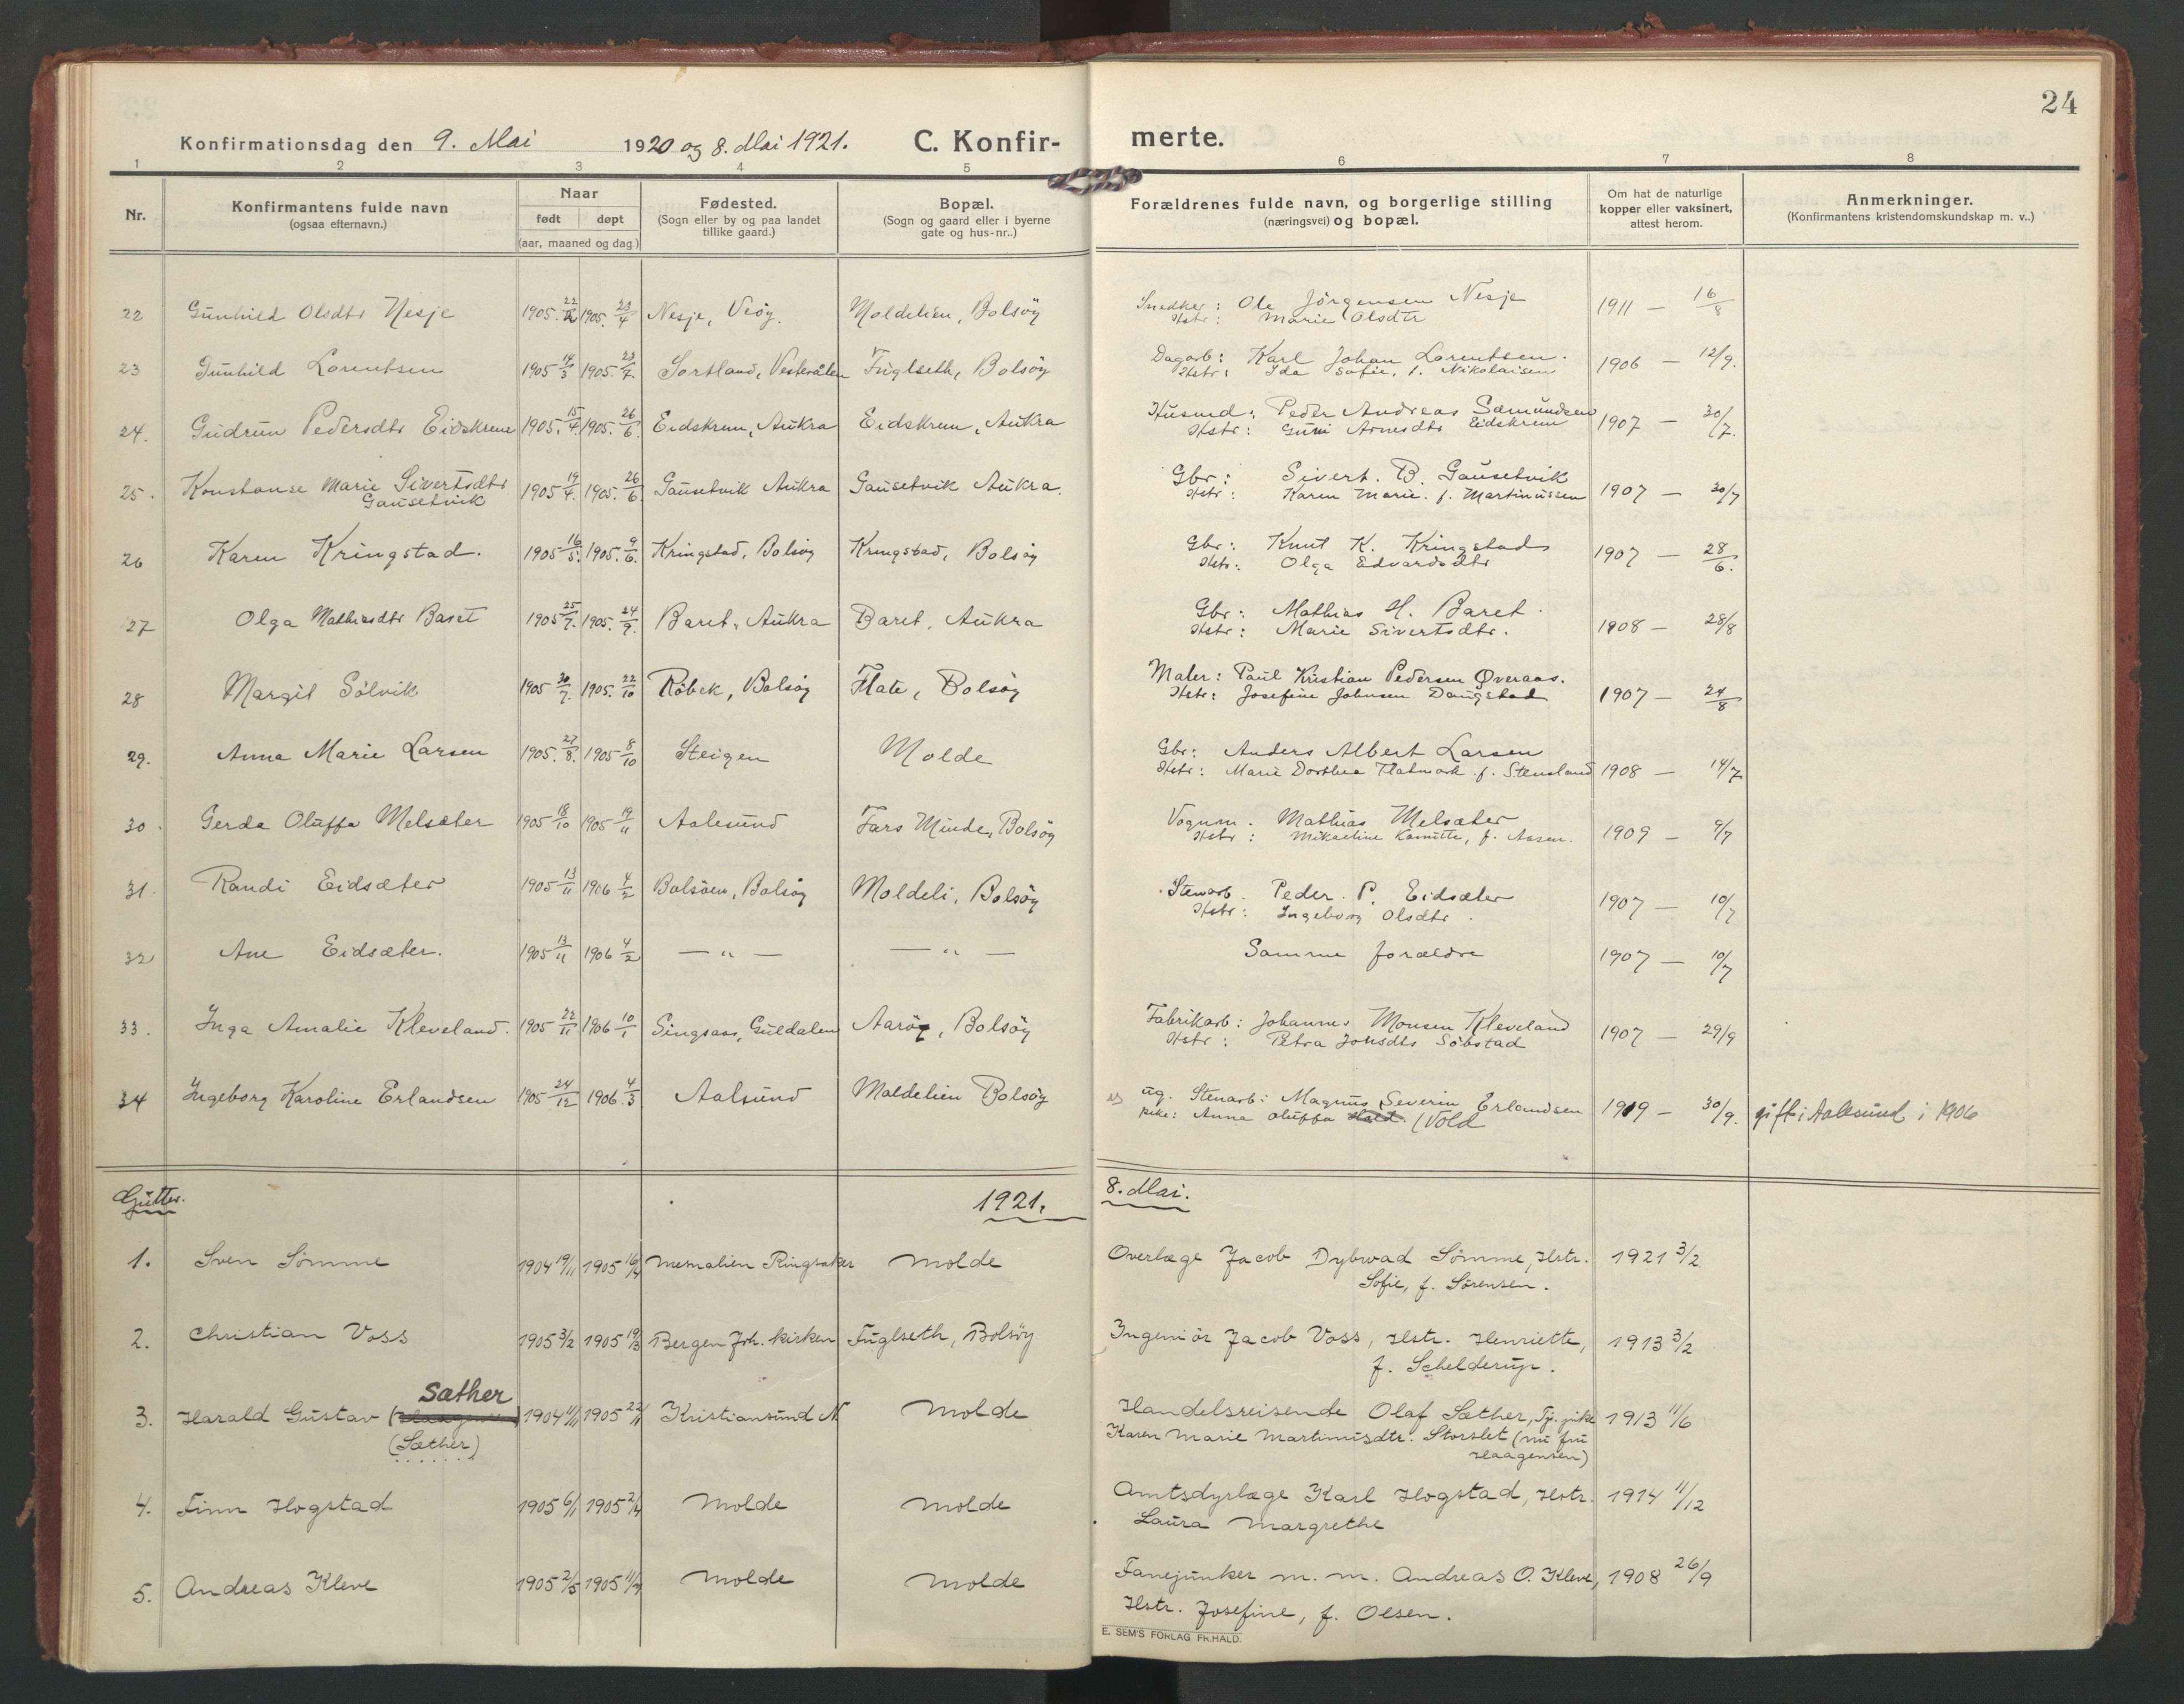 24
Konfirmationsdag den 9. Mai 1920 og 8. Mai 1921. C. Konfir- merte.
1 2 3 4 5 6 7 8
Nr.
Konfirmantens fulde navn
(ogsaa efternavn.)
Naar
født døpt
(aar, maaned og dag)
Fødested.
(Sogn eller by og paa landet
tillike gaard.)
Bopæl.
(Sogn og gaard eller i byerne
gate og hus-nr..)
Forældrenes fulde navn, og borgerlige stilling
(næringsvei) og bopæl.
Om hat de naturlige
kopper eller vaksinert,
attest herom.
Anmerkninger.
(Konfirmantens kristendomskundskap m. v..)
22 Gunhild Olsdtr Nesje 1905. 1905. 23/4 Nesje, Veöy. Moldelien, Bolsöy Snedker: Ole Jörgensen Nesje 1911 — 16/8
Hstr: Marie Olsdtr
23 Gunhild Lorentsen 1905 14/3 1905. 23/4. Sortland, Vesterålen Fuglseth, Bolsöy Dagarb: Karl Johan Lorentsen. 1906 — 12/9.
Hstr: Ida Sofie, f. Nikolaisen
24. Gudrun Pedersdtr Eidskrem 1905. 15/4. 1905. 26/6. Eidskrem, Aukra Eidskrem, Aukra Husmd: Peder Andreas Sæmundsen 1907 — 30/7.
Hstr: Guri Arnesdtr Eidskrem
25. Konstanse Marie Sivertsdtr 1905 19/4. 1905. 26/6. Gausetvik Aukra Gausetvik Aukra. Gbr: Sivert. B. Gausetvik 1907 — 30/7
Gausetvik Hstr: Karen Marie. f. Martinussen
26 Karen Kringstad. 1905 16/5. 1905. 9/6. Kringstad, Bolsöy Kringstad, Bolsöy Gbr: Knut K. Kringstad 1907 — 28/6.
Hstr: Olga Edvardsdtr
27 Olga Mathiasdtr Baret 1905 25/7. 1905. 24/9. Baret, Aukra Baret, Aukra Gbr: Mathias H. Baret. 1908 — 28/8
Hstr: Marie Sivertsdtr.
28 Margit Sölvik 1905 30/7. 1905. 22/10 Röbek, Bolsöy Flate, Bolsöy Maler: Paul Kristian Pedersen Øveraas. 1907 — 24/8
Hstr: Josefine Johnsen Daugstad
29. Anna Marie Larsen 1905. 27/8. 1905 8/10 Steigen Molde Gbr: Anders Albert Larsen 1908 — 14/7
Hstr: Marie Dorthea Flatmark f. Stensland
30. Gerda Oluffa Melsæter 1905 18/10 1905 19/11 Aalesund Fars Minde, Bolsöy Vognm. Mathias Melsæter 1909 — 9/7
Hstr: Mikaeline Kamitte, f. Aasen.
31. Randi Eidsæter 1905 13/11 1906 4/2 Bolsöen, Bolsöy Moldeli, Bolsöy Stenarb. Peder. P. Eidsæter 1907 — 10/7
Hstr: Ingeborg Olsdtr.
32 Ane Eidsæter. 1905 13/11 1906 4/2 — " — — " — Samme forældre 1907 — 10/7
33. Inga Amalie Kleveland. 1905 22/11 1906 10/1 Singsaas, Guldalen Aaröy, Bolsöy Fabrikarb: Johannes Monsen Kleveland 1907 — 29/9
Hstr: Petra Jonsdtr Söbstad
34 Ingeborg Karoline Erlandsen 1905 24/12 1906 4/3 Aalsund Moldelien Bolsöy ug. Stenarb: Magnus Severin Erlandsen 1919 — 30/9. gift i Aalesund i 1906
pike: Anna Oluffa (Vold
Gutter. 1921. 8. Mai.
1. Sven Sömme 1904 19/11 1905 16/4 Mesnalien Ringsaker Molde Overlæge Jacob Dybwad Sömme, Hstr. 1921 3/2
Sofie, f. Sörensen.
2. Christian Voss 1905 3/2 1905 19/3 Bergen Joh. kirken Fuglseth, Bolsöy Ingeniör Jacob Voss, Hstr. Henriette, 1913 3/2
f. Schelderup.
Sæther
3. Harald Gustav (Haagensen) 1904 11/11 1905 22/11 Kristiansund N. Molde Handelsreisende Olaf Sæther, Tj. pike 1913 11/6
(Sæther) Karen Marie Martinusdtr. Storslet (nu fru
Haagensen)
4. Finn Hogstad 1905 6/1 1905 2/4 Molde Molde Amtsdyrlæge Karl Hogstad, Hstr. 1914 11/12
Laura Margrethe
5. Andreas Kleve 1905 2/5 1905 11/7 Molde Molde Fanejunker m. m. Andreas O. Kleve, 1908 26/9
Hstr. Josefine, f. Olsen.
E. SEM'S FORLAG FR.HALD.